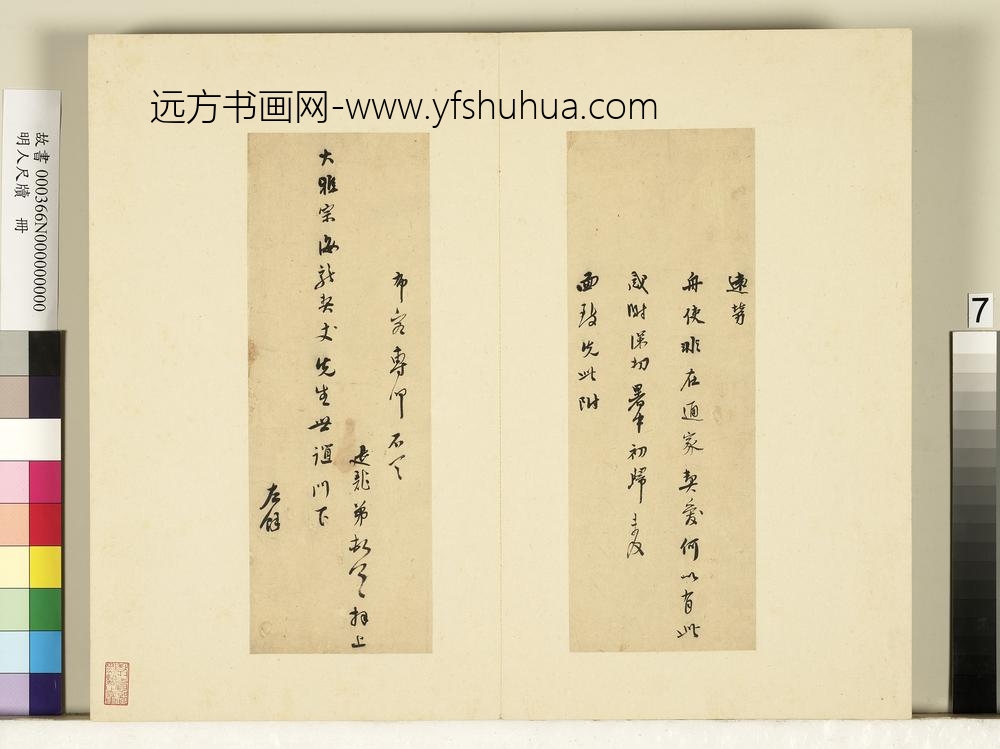 远方书画网-www.yfshuhua.com
故書 000366N000000000
明人尺牘 冊
7
遠勞
舟使非在通家契愛何以有此
感附深切暑中初歸未及
面致先此附
布容專
弟 拜上
大雅宗 契丈先生世誼門下
左餘